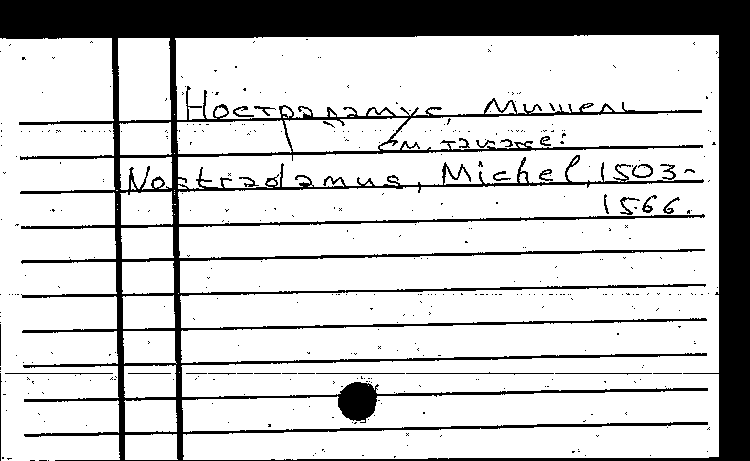 Нострадамус, Мишель
см. также:
Nostradamus, Michel, 1503-
1566.